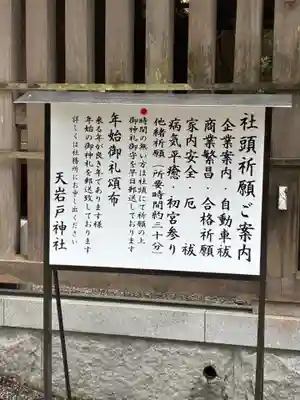 社頭祈願ご案内
企業案内・自動車祓
商業繁昌・合格祈願
家内安全・厄祓
病気平癒・初宮参り
他緒祈願(所安時間約三十分)
時間の無い方は社頭にて祈願の上
御神札御守を早日郵送しております
年始御礼頒布
来る年が良き年であります様
年始の御神札を郵送致しております
詳しくは社務所にお申し出ください
天岩戸神社